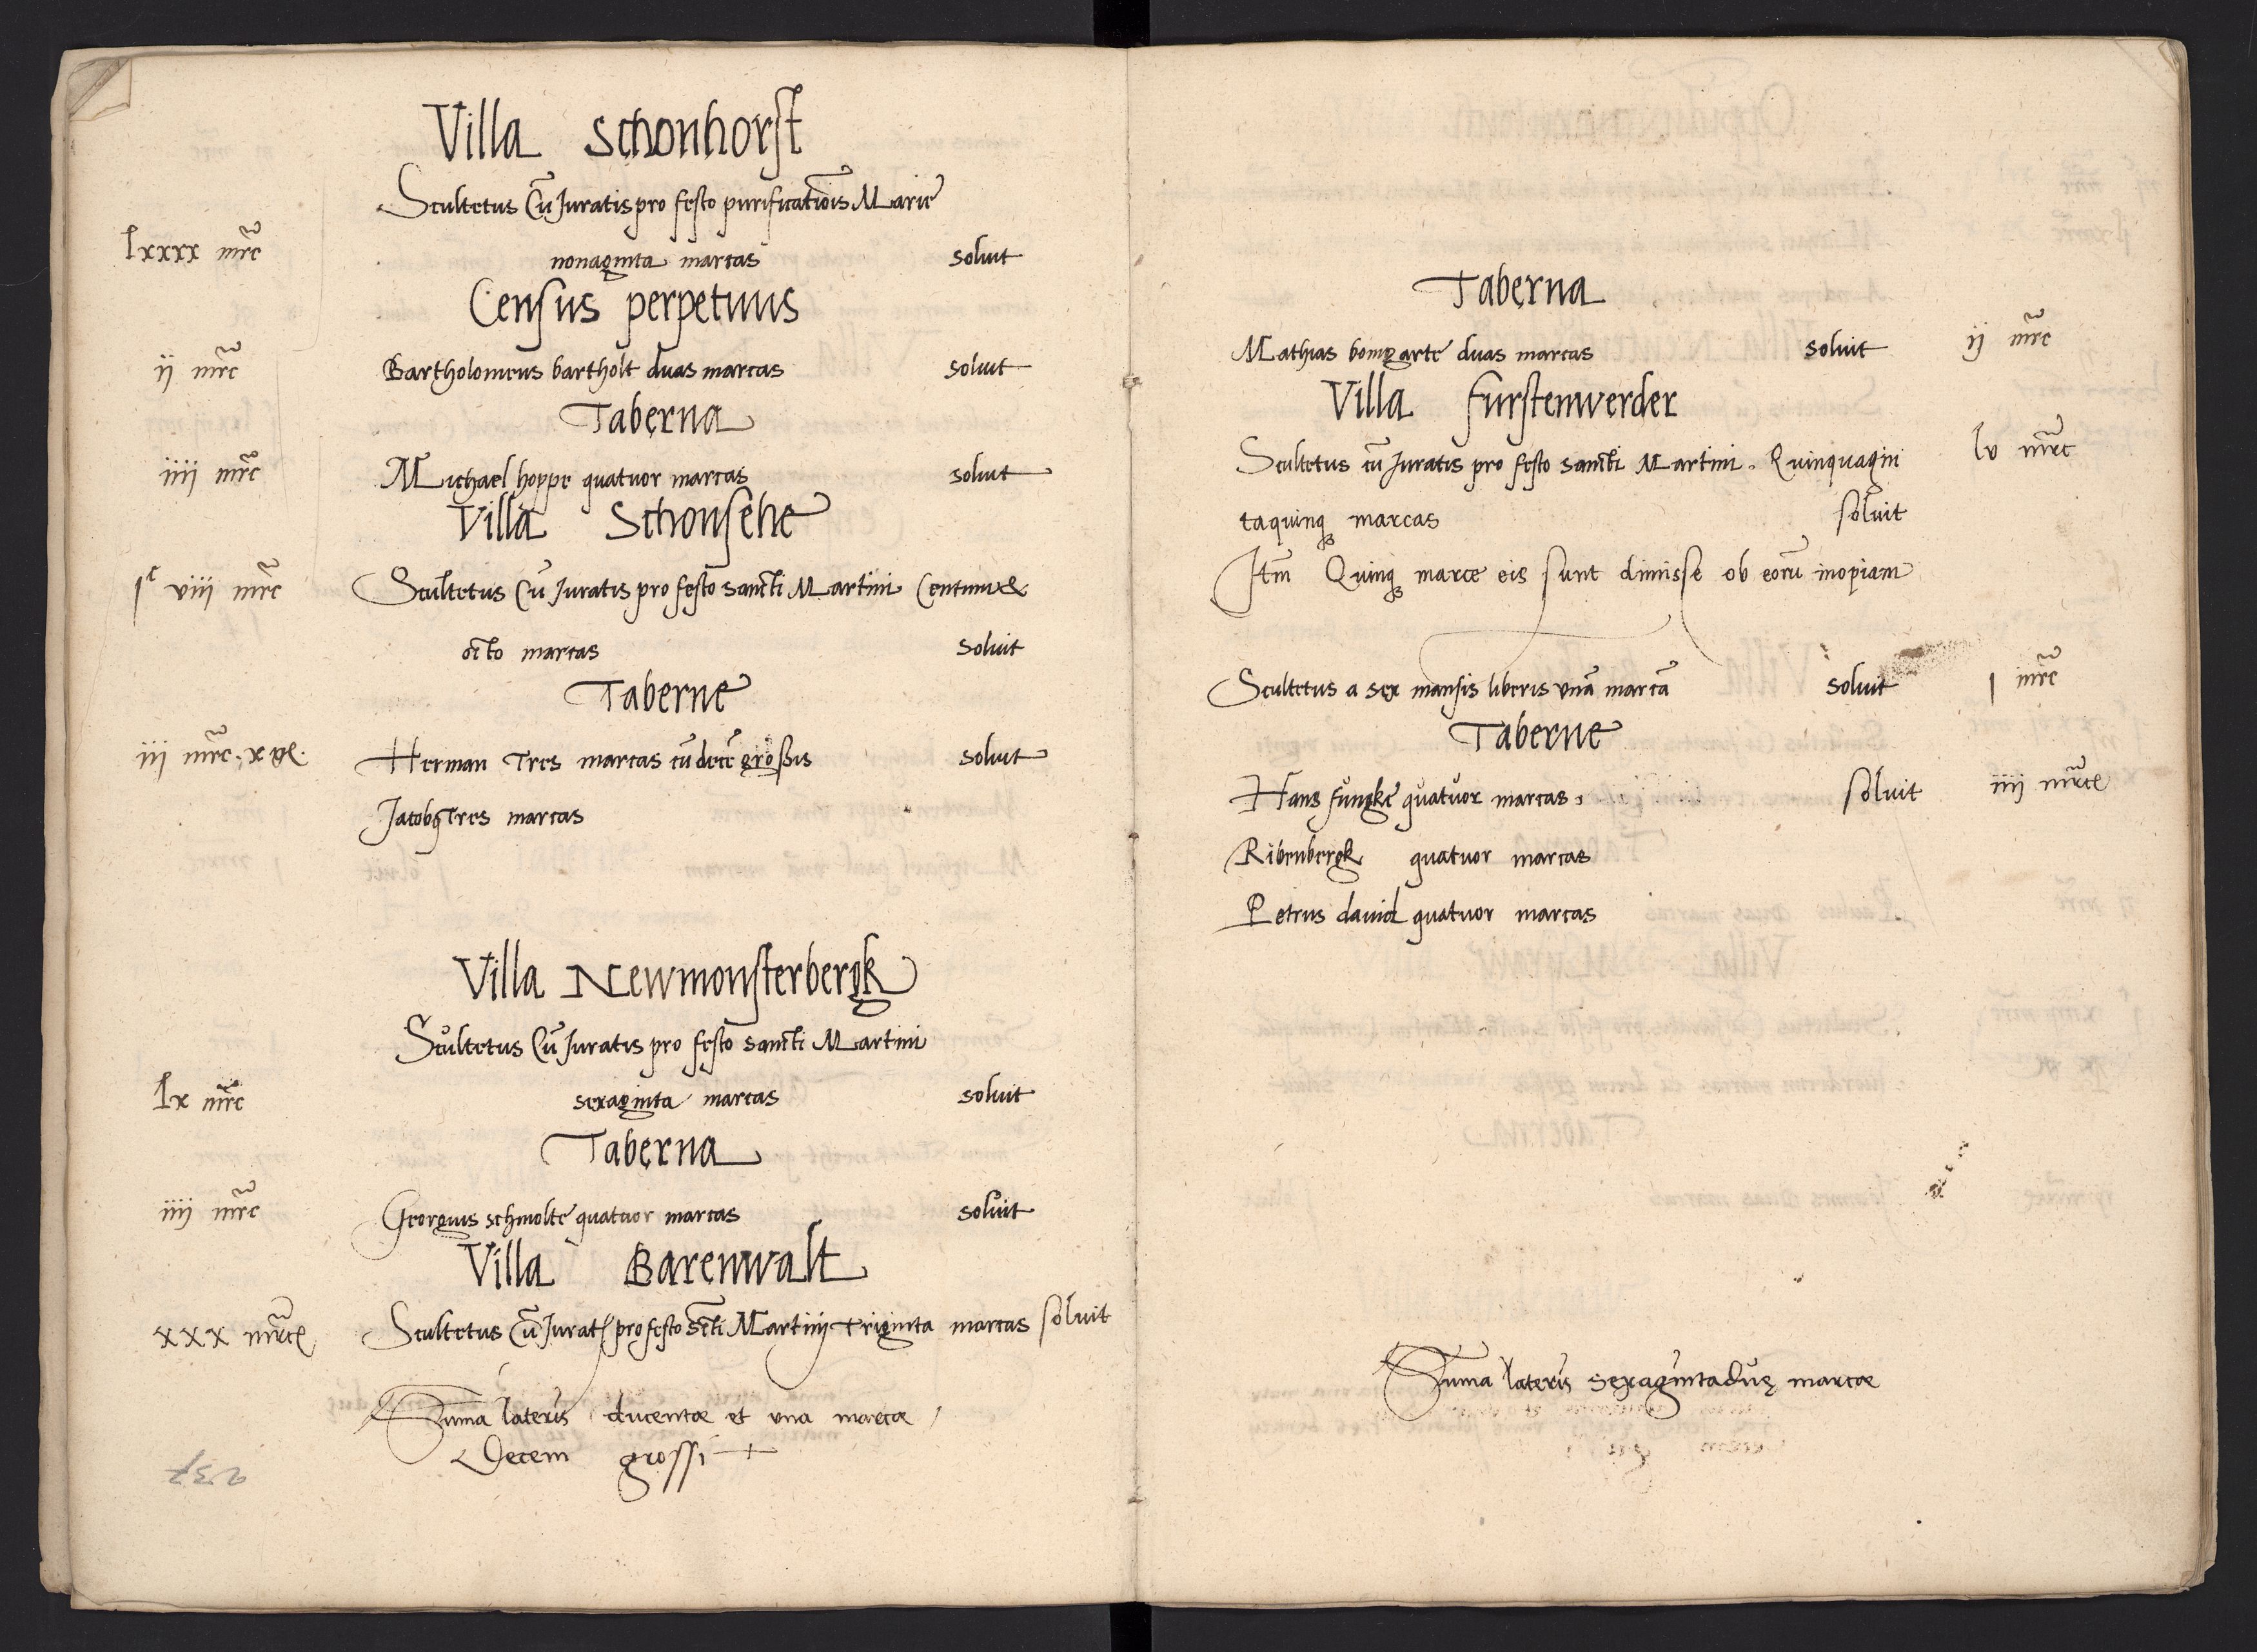 Villa Schonhorst
Scultetus Cū Juratis pro festo purificatiois Marie
lxxxx mrc nonaginta marcas soluit
Census perpetuus
ij mrc Bartholomeus bartholt duas marcas soluit
Taberna
iiij mrc Michael hoppe quatuor marcas soluit
Villa Schonsehe
jᶜ viij mrc Scultetus Cū Juratis pro festo sancti Martini Centum &
octo marcas soluit
Taberne
iij mrc. x gl. Herman Tres marcas cū decē grossis soluit
Jacobꝰ Tres marcas
Villa Newmonsterbergk
Scultetus Cū Juratis pro festo sancti Martini
lx mrc sexaginta marcas soluit
Taberna
iiij mrc Georgius schmolte quatuor marcas soluit
Villa Barenwalt
xxx mrc Scultetus Cū Jurat pro festo Scti Martinj Triginta marcas soluit
Suma lateris ducentæ et una marcæ
Decem grossi
Taberna
Mathias bomgarte duas marcas soluit ij mrc
Villa furstenwerder
Scultetus cū Juratis pro festo sancti Martini. Quinquagin lv mrc
taquinqꝫ marcas soluit
Itm Quinqꝫ marce eis sunt dimisse ob eorū inopiam
Scultetus a sex mansis liberis unā marcā soluit j mrc
Taberne
Hans fungke quatuor marcas soluit iiij mrc
Ribenbergk quatuor marcas
Petrus dauid quatuor marcas
Suma lateris sexagintaduę marcæ